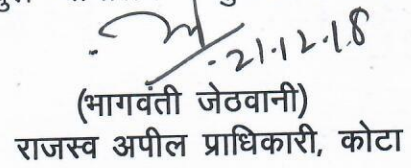 21.12.18
(भागवंती जेठवानी)
राजस्व अपील प्राधिकारी, कोटा